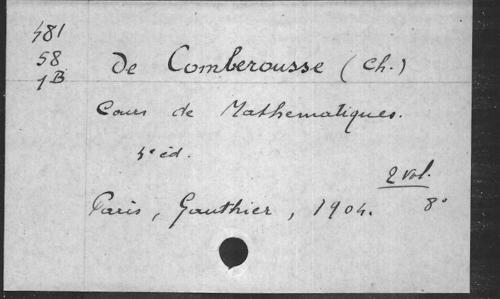 481
58
1B
de Comberousse (Ch.)
Cours de Mathematiques.
4e éd.
2 vol.
Paris, Gauthier, 1904. 8°